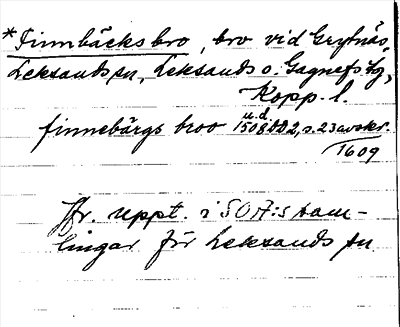 *Finnbäcksbro, bro vid Grytnäs,
Leksands sn, Leksands o. Gagnefs tg,
Kopp. l.
finnebärgs broo u.d. 1508 DD 2, s. 23 avskr.
1609
Jfr. uppt. i SOA:s sam-
lingar för Leksands sn